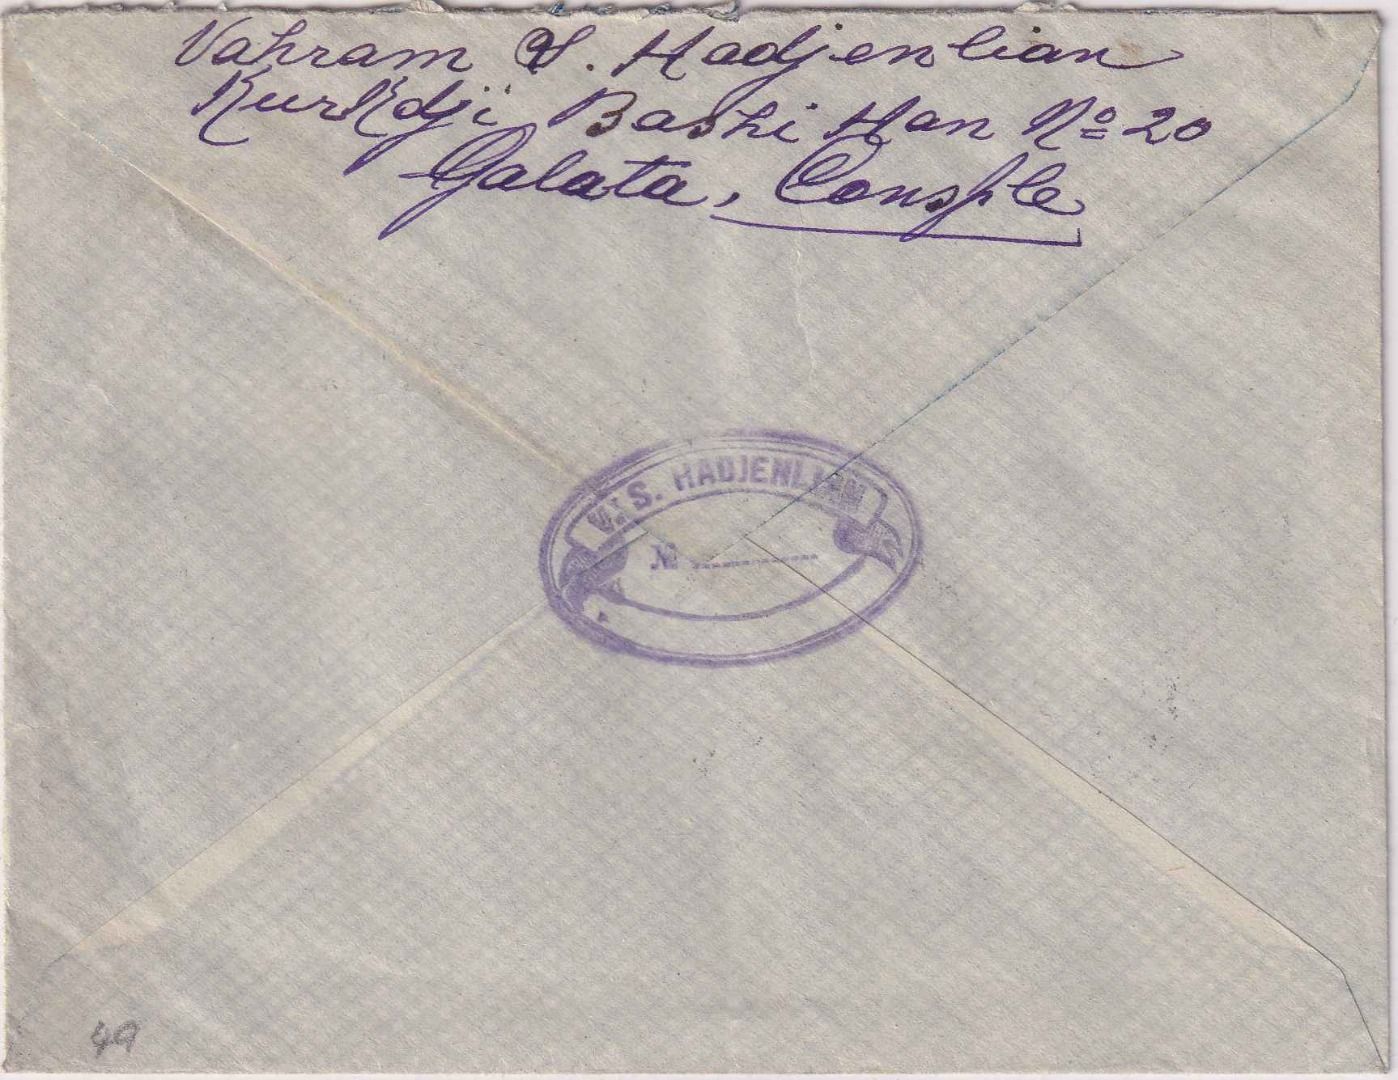 Vahram S. Hadjenlian
Kurkdji Bashi Han Nº 20
Galata, Consple
V. S. HADJENLIAN
Nº
49